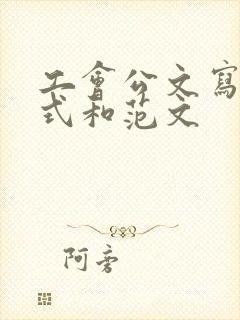 工會公文寫
式和范文
阿旁